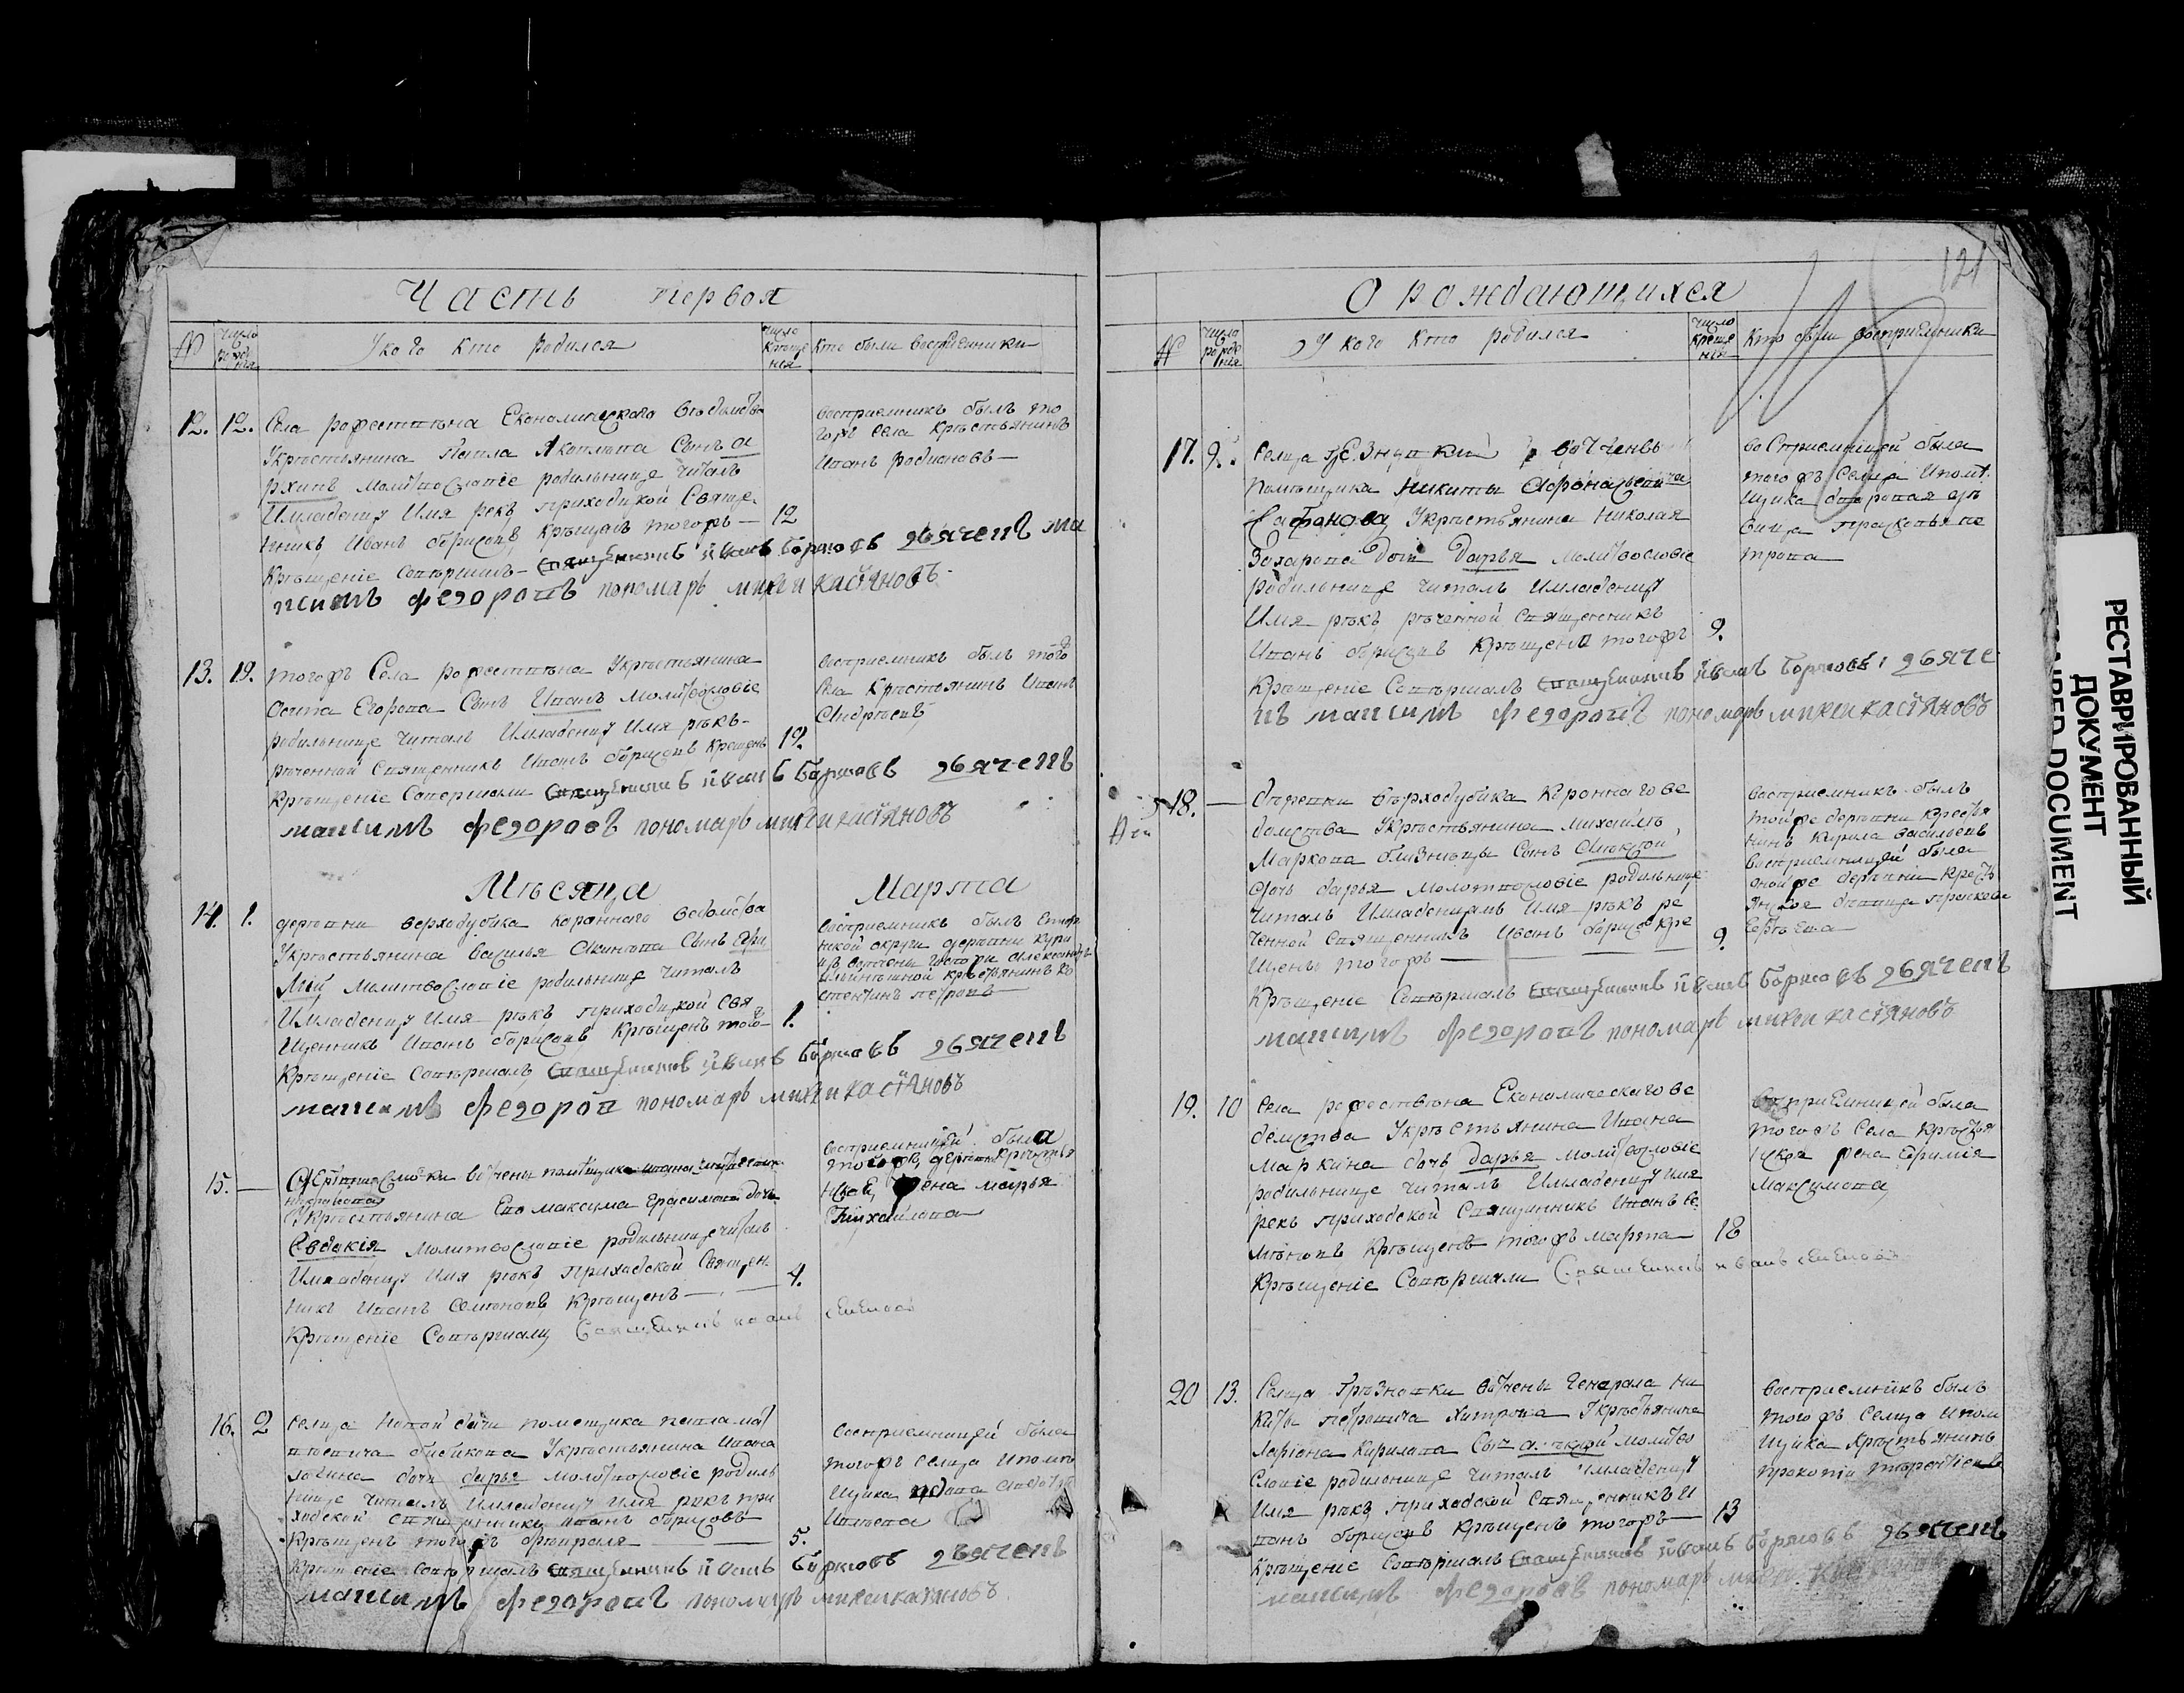 Часть первоя
№
число рожде нія
У кого кто родился
число крѣще нія
кто были восприемники
12. 12. Села рожествѣна Економическаго вѣдомства
Укрѣстьянина Павла Яковлева Сынъ а
рхипъ молитвословіе родильнице читалъ
Имладенцу Имя рекъ приходцкой Свяще
нникъ Иванъ борисовъ крѣщенъ тогожъ — 12
Крѣщеніе Совѣршалъ Священникъ иванъ борисовъ дьяченъ ма
ксимъ федоровъ пономарь микеи касіяновъ
восприемникъ былъ то
гожъ Села крѣстьянинъ
Иванъ родионовъ
13. 19. тогожъ Села рожествѣна Укрѣстьянина
Егорова Сынъ Иванъ молитвословіе
родильнице читалъ Имладенцу Имя рѣкъ
рѣченной Священникъ Иванъ борисовъ крещенъ 19.
Крѣщеніе Совершали Священникъ иванъ борисовъ дьяченъ
максимъ федоровъ пономарь микеи касіяновъ
восприемникъ былъ того
Села Крѣстьянинъ Иванъ
Андрѣевъ
Мѣсяца Марта
14. 1. деревни верходубика коронного ведомства
Укрѣстьянина василья Сынъ
молитвословіе родильнице читалъ
Имладенцу Имя рѣкъ приходцкой свя
щенникъ Иванъ борисовъ Крѣщенъ того 1.
Крѣщеніе Совѣршалъ Священникъ иванъ борисовъ дьяченъ
максимъ федоров пономарь микеи касіяновъ
восприемникъ былъ
округи деревни
крѣстьянинъ ко
стентинъ петровъ
15. — вотчены помѣщика
Укрѣстьянина Ево максима Герасимова дочь
Евдакія молитвословіе родильнице читалъ
Имладенцу Имя рѣкъ приходской Священ
никъ Иванъ Семеновъ Крѣщенъ — 4.
Крѣщеніе Совѣршалъ Священникъ иванъ семеновъ
восприемницей была
тойже деревни крѣстья
нская жена марья
михайлова
16. 2 Селца новой дачи помещика павла мат
вѣевича бибикова Укрѣстьянина Ивана
дочь дарья молотвословіе родиль
нице читалъ Имладенцу Имя рекъ при
ходской священникъ иванъ борисовъ
Крѣщенъ тогожъ февраля — 5.
Крещеніе Совѣршалъ Священникъ иванъ борисовъ дьяченъ
максимъ федоровъ пономарь микеи касіяновъ
восприемницей была
тогожъ Селца Ипомѣ
щика
Ивлева
121
О рождающихся
№
число рожде нія
У кого кто родился
число креще нія
Кто были восприемники
17. 9. Селца вотчены
помѣщика никиты Афонасьевича
Сафонова Укрѣстьянина Николая
Захарова дочь Дарья молитвословіе
родильнице читалъ Имладенцу
Имя рѣкъ рѣченной священникъ
Иванъ борисовъ Крѣщена тогожъ 9.
Крѣщеніе Совѣршалъ Священникъ иванъ борисовъ дьяче
нъ максимъ федоровъ пономарь микеи касіяновъ
восприемницей была
тогожъ Селца Ипомѣ
щика дворовая дѣ
вица прасковья пе
трова
18. — деревни вѣрходубика Коронного ве
домства Укрѣстьянина михайлы
Маркова близнецы Сынъ Алексѣй
дочь дарья молотвословіе родильнице
читалъ Имладенцамъ Имя рѣкъ ре
ченной священникъ Иванъ борисовъ кре
щены тогожъ — 9.
Крѣщеніе Совѣршалъ Священникъ иванъ борисовъ дьяченъ
максимъ федоровъ пономарь микеи касіяновъ
восприемникъ былъ
тойже деревни крестья
нинъ Кирила васильевъ
восприемницей была
оной же деревни крестъ
янская девица прасковья
Сергѣева
19. 10 Села рожествѣна Економическаго ве
домства Укрѣстьянина Ивана
маркина дочь дарья молитвословіе
родильнице читалъ Имладенцу имя
рекъ приходской Священникъ Иванъ Се
мѣновъ Крѣщенъ тогожъ марта — 18
Крѣщеніе Совѣршали Священникъ иванъ семеновъ
восприемницей была
тогожъ Села крѣстья
нская жена Ефимія
Максимова
20 13. Селца Грязновки вотчены Генерала ни
киты петровича хитрова Укрѣстьянина
Лариона Кирилова Сынъ алексѣй молитво
словіе родильнице читалъ Имладенцу
Имя рѣкъ приходской Священникъ И
ванъ борисовъ Крѣщенъ тогожъ — 13
Крѣщеніе Совѣршалъ Священникъ иванъ борисовъ дьяченъ
максимъ федоровъ пономарь микеи
восприемникъ былъ
тогожъ Селца Ипом
щика Крѣстьянинъ
прокопій
РЕСТАВРИРОВАННЫЙ
ДОКУМЕНТ
DOCUMENT